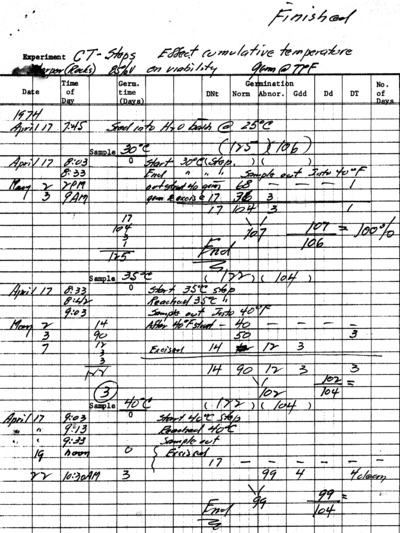 Finished
Experiment CT-Steps Effect cumulative temperature
(Rocks) on viability
Germination
Time Germ. No.
Date of time DNt Norm Abnor. Gdd Dd DT of
Day (Days) Days
1974
April 17 7:45 Seed into H2O bath @ 25°C
Sample 30°C (125)(106)
April 17 8:03 0 Start 30°C Step
8:33 End " " " Sample out Into 40°F
May 2 2PM 68 - - - 1
3 9AM 17 36 3
17 104 3 1
17
104 107 107 = 100%
3 106
1 End
125
Sample 35°C (122)(104)
April 17 8:33 0 Start 35°C step
8:42 Reached 35°C "
9:03 Sample out Into 40°F
May 2 14 After 40°F - 40 - - - -
3 90 50 3
7 12 Excised 14 12 3
3
3 14 90 12 3 3
122 102
3 102 104 =
Sample 40°C (122)(104)
April 17 9:03 0 Start 40°C step
" " 9:13 Reached 40°C
" " 9:33 Sample out
19 noon 0 Excised
17 - - - -
22 10:30AM 3 99 4
99 99 =
End 104